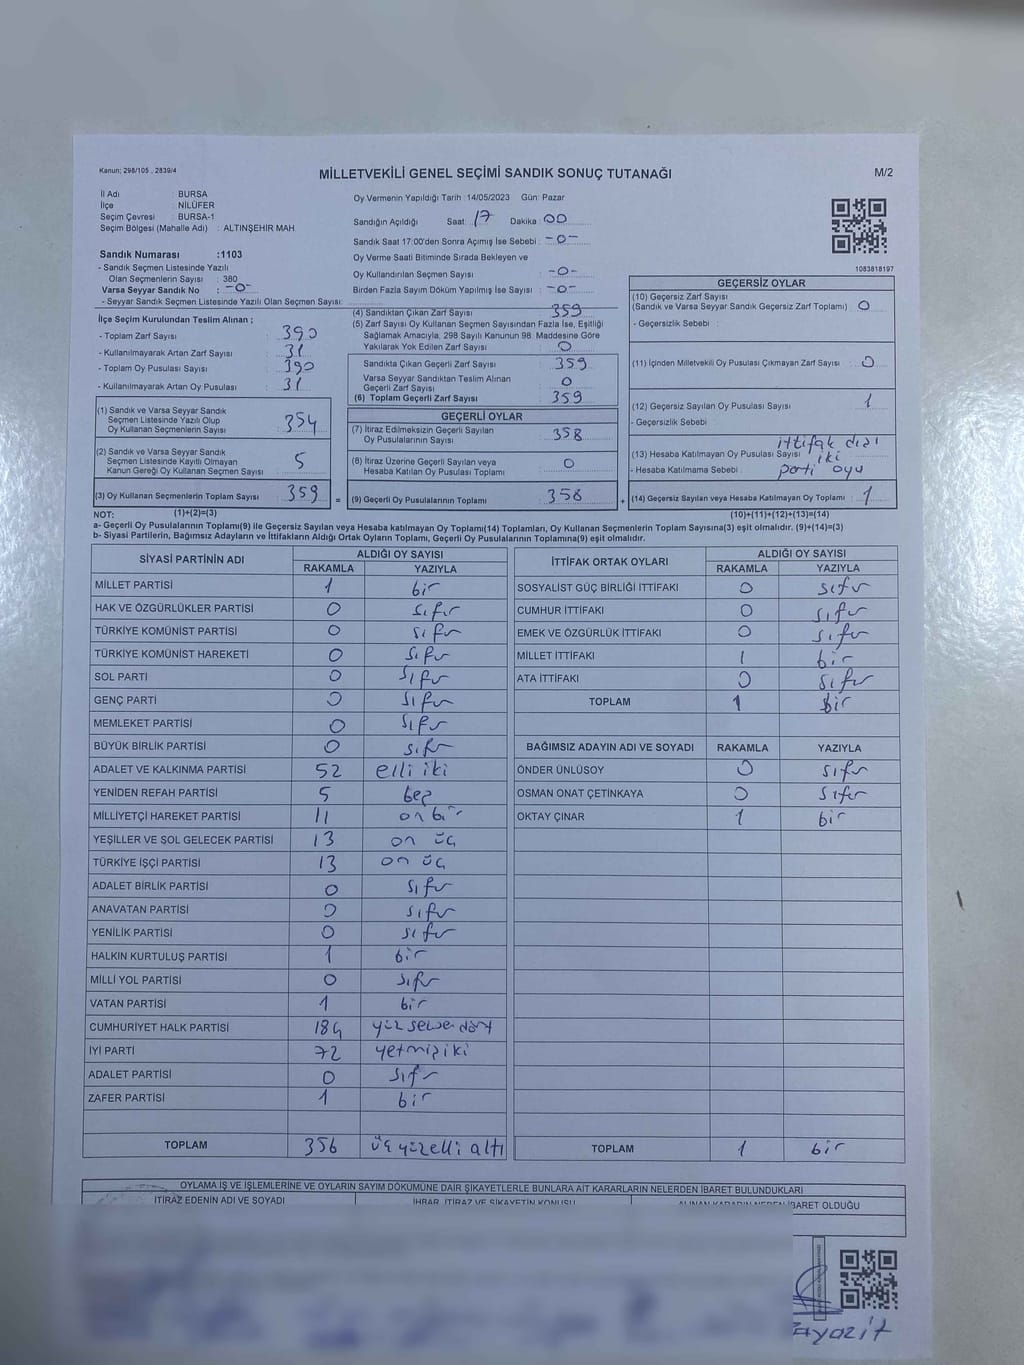 Kanun: 298/105 , 2839/4
MİLLETVEKİLİ GENEL SEÇİMİ SANDIK SONUÇ TUTANAĞI
M/2
İl Adı : BURSA
İlçe : NİLÜFER
Seçim Çevresi : BURSA-1
Seçim Bölgesi (Mahalle Adı) : ALTINŞEHİR MAH
Sandık Numarası :1103
- Sandık Seçmen Listesinde Yazılı
Olan Seçmenlerin Sayısı : 380
Varsa Seyyar Sandık No : -0-
- Seyyar Sandık Seçmen Listesinde Yazılı Olan Seçmen Sayısı:
Oy Vermenin Yapıldığı Tarih :14/05/2023 Gün: Pazar
Sandığın Açıldığı Saat: 17 Dakika: 00
Sandık Saat 17:00'den Sonra Açımış İse Sebebi : -0-
Oy Verme Saati Bitiminde Sırada Bekleyen ve
Oy Kullandırılan Seçmen Sayısı : -0-
Birden Fazla Sayım Döküm Yapılmış İse Sayısı : -0-
1083818197
İlçe Seçim Kurulundan Teslim Alınan ;
- Toplam Zarf Sayısı : 390
- Kullanılmayarak Artan Zarf Sayısı : 31
- Toplam Oy Pusulası Sayısı : 390
- Kullanılmayarak Artan Oy Pusulası : 31
(1) Sandık ve Varsa Seyyar Sandık
Seçmen Listesinde Yazılı Olup
Oy Kullanan Seçmenlerin Sayısı : 354
(2) Sandık ve Varsa Seyyar Sandık
Seçmen Listesinde Kayıtlı Olmayan
Kanun Gereği Oy Kullanan Seçmen Sayısı : 5
(3) Oy Kullanan Seçmenlerin Toplam Sayısı : 359 =
(1)+(2)=(3)
(4) Sandıktan Çıkan Zarf Sayısı : 359
(5) Zarf Sayısı Oy Kullanan Seçmen Sayısından Fazla İse, Eşitliği
Sağlamak Amacıyla, 298 Sayılı Kanunun 98. Maddesine Göre
Yakılarak Yok Edilen Zarf Sayısı : 0
Sandıkta Çıkan Geçerli Zarf Sayısı : 359
Varsa Seyyar Sandıktan Teslim Alınan
Geçerli Zarf Sayısı : 0
(6) Toplam Geçerli Zarf Sayısı : 359
GEÇERLİ OYLAR
(7) İtiraz Edilmeksizin Geçerli Sayılan
Oy Pusulalarının Sayısı : 358
(8) İtiraz Üzerine Geçerli Sayılan veya
Hesaba Katılan Oy Pusulası Toplamı : 0
(9) Geçerli Oy Pusulalarının Toplamı : 358 +
GEÇERSİZ OYLAR
(10) Geçersiz Zarf Sayısı
(Sandık ve Varsa Seyyar Sandık Geçersiz Zarf Toplamı) : 0
- Geçersizlik Sebebi :
(11) İçinden Milletvekili Oy Pusulası Çıkmayan Zarf Sayısı : 0
(12) Geçersiz Sayılan Oy Pusulası Sayısı : 1
- Geçersizlik Sebebi
ittifak dışı
(13) Hesaba Katılmayan Oy Pusulası Sayısı iki
- Hesaba Katılmama Sebebi : parti oyu
(14) Geçersiz Sayılan veya Hesaba Katılmayan Oy Toplamı : 1
(10)+(11)+(12)+(13)=(14)
NOT:
a- Geçerli Oy Pusulalarının Toplamı(9) ile Geçersiz Sayılan veya Hesaba katılmayan Oy Toplamı(14) Toplamları, Oy Kullanan Seçmenlerin Toplam Sayısına(3) eşit olmalıdır. (9)+(14)=(3)
b- Siyasi Partilerin, Bağımsız Adayların ve İttifakların Aldığı Ortak Oyların Toplamı, Geçerli Oy Pusulalarının Toplamına(9) eşit olmalıdır.
SİYASİ PARTİNİN ADI ALDIĞI OY SAYISI
RAKAMLA YAZIYLA
MİLLET PARTİSİ 1 bir
HAK VE ÖZGÜRLÜKLER PARTİSİ 0 sıfır
TÜRKİYE KOMÜNİST PARTİSİ 0 sıfır
TÜRKİYE KOMÜNİST HAREKETİ 0 sıfır
SOL PARTİ 0 sıfır
GENÇ PARTİ 0 sıfır
MEMLEKET PARTİSİ 0 sıfır
BÜYÜK BİRLİK PARTİSİ 0 sıfır
ADALET VE KALKINMA PARTİSİ 52 elli iki
YENİDEN REFAH PARTİSİ 5 beş
MİLLİYETÇİ HAREKET PARTİSİ 11 on bir
YEŞİLLER VE SOL GELECEK PARTİSİ 13 on üç
TÜRKİYE İŞÇİ PARTİSİ 13 on üç
ADALET BİRLİK PARTİSİ 0 sıfır
ANAVATAN PARTİSİ 0 sıfır
YENİLİK PARTİSİ 0 sıfır
HALKIN KURTULUŞ PARTİSİ 1 bir
MİLLİ YOL PARTİSİ 0 sıfır
VATAN PARTİSİ 1 bir
CUMHURİYET HALK PARTİSİ 184 yüz seksen dört
İYİ PARTİ 72 yetmiş iki
ADALET PARTİSİ 0 sıfır
ZAFER PARTİSİ 1 bir
TOPLAM 356 üç yüz elli altı
İTTİFAK ORTAK OYLARI ALDIĞI OY SAYISI
RAKAMLA YAZIYLA
SOSYALİST GÜÇ BİRLİĞİ İTTİFAKI 0 sıfır
CUMHUR İTTİFAKI 0 sıfır
EMEK VE ÖZGÜRLÜK İTTİFAKI 0 sıfır
MİLLET İTTİFAKI 1 bir
ATA İTTİFAKI 0 sıfır
TOPLAM 1 bir
BAĞIMSIZ ADAYIN ADI VE SOYADI RAKAMLA YAZIYLA
ÖNDER ÜNLÜSOY 0 sıfır
OSMAN ONAT ÇETİNKAYA 0 sıfır
OKTAY ÇINAR 1 bir
TOPLAM 1 bir
OYLAMA İŞ VE İŞLEMLERİNE VE OYLARIN SAYIM DÖKÜMÜNE DAİR ŞİKAYETLERLE BUNLARA AİT KARARLARIN NELERDEN İBARET BULUNDUKLARI
İTİRAZ EDENİN ADI VE SOYADI İHBAR, İTİRAZ VE ŞİKAYETİN KONUSU ALINAN KARARIN NEDEN İBARET OLDUĞU